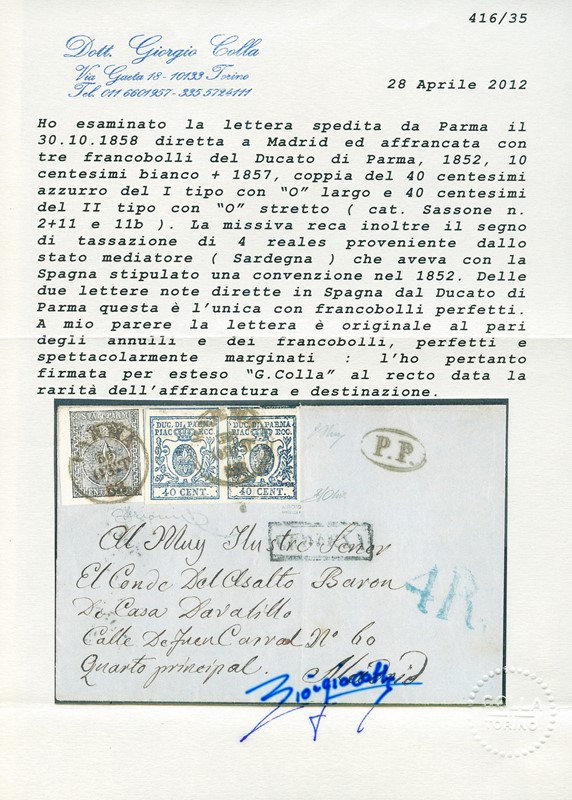 416/35
Dott. Giorgio Colla
Via Gaeta 18 - 10133 Torino
Tel. 011 6601957 - 335 5724111
28 Aprile 2012
Ho esaminato la lettera spedita da Parma il
30.10.1858 diretta a Madrid ed affrancata con
tre francobolli del Ducato di Parma, 1852, 10
centesimi bianco + 1857, coppia del 40 centesimi
azzurro del I tipo con "O" largo e 40 centesimi
del II tipo con "O" stretto ( cat. Sassone n.
2+11 e 11b ). La missiva reca inoltre il segno
di tassazione di 4 reales proveniente dallo
stato mediatore ( Sardegna ) che aveva con la
Spagna stipulato una convenzione nel 1852. Delle
due lettere note dirette in Spagna dal Ducato di
Parma questa è l'unica con francobolli perfetti.
A mio parere la lettera è originale al pari
degli annulli e dei francobolli, perfetti e
spettacolarmente marginati : l'ho pertanto
firmata per esteso "G.Colla" al recto data la
rarità dell'affrancatura e destinazione.
STATI PARM
DUC. DI PARMA
PIAC. ECC.
40 CENT.
DUC. DI PARMA
PIAC. ECC.
40 CENT.
P.P.
Al Muy Ilustre Senor
El Conde Del Asalto Baron
De Casa Davalillo
4R.
Calle De Fuen Carral Nº 60
Quarto principal. Madrid
Giorgio Colla
COLLA
TORINO